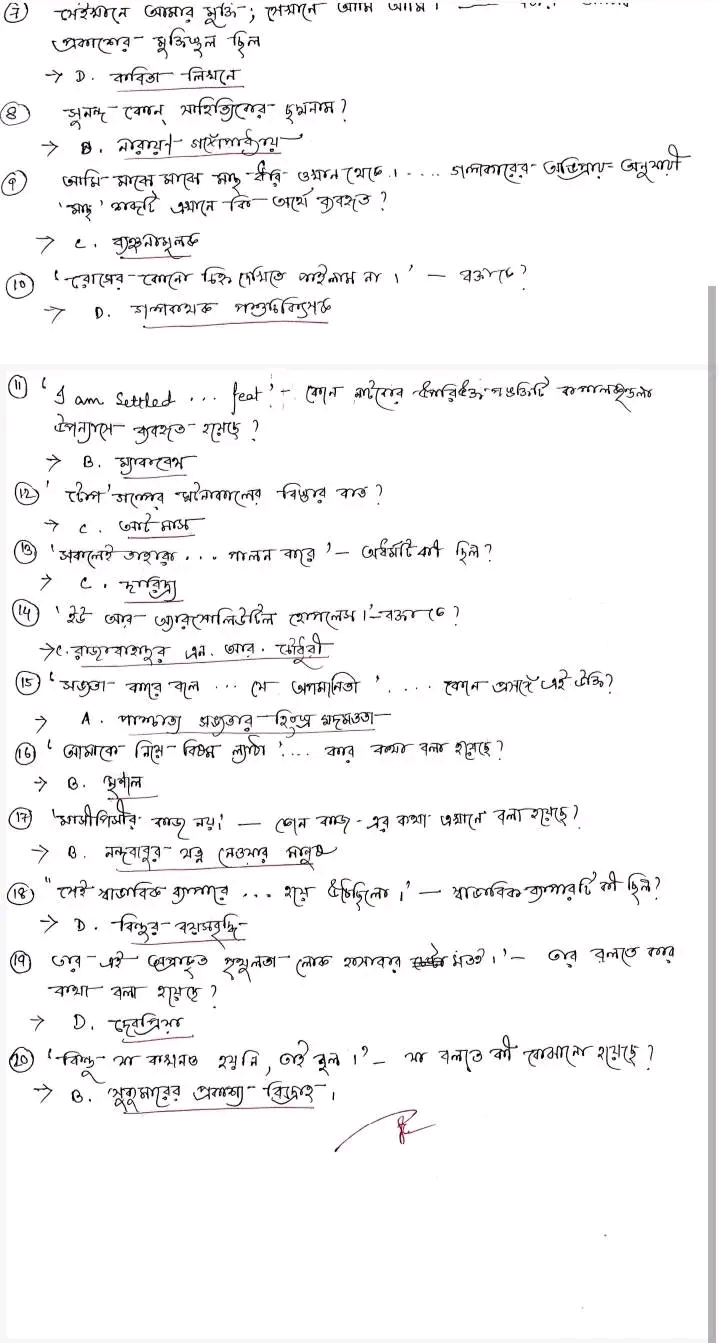 ⑦ সেইখানে আমার মুক্তি; সেখানে আমি আমি।
প্রকাশের মুক্তিস্থল ছিল
→ D. কবিতা লিখনে
⑧ সুনন্দ কোন্ সাহিত্যিকের ছদ্মনাম?
→ B. নারায়ণ গঙ্গোপাধ্যায়
⑨ আমি মাঝে মাঝে মাছ ধরি ওখান থেকে।.... গল্পকারের অভিপ্রায় অনুযায়ী
'মাছ' শব্দটি এখানে কি অর্থে ব্যবহৃত?
→ C. ব্যঞ্জনামূলক
⑩ 'রোগের কোনো চিহ্ন দেখিতে পাইলাম না।' — বক্তা কে?
→ D. গল্পকথক পশুচিকিৎসক
⑪ 'I am settled ... feat' - কোন নাটকের উপরিউক্ত পঙক্তিটি কপালকুণ্ডলা
উপন্যাসে ব্যবহৃত হয়েছে?
→ B. ম্যাকবেথ
⑫ 'টোপ' গল্পের ঘটনাকালের বিস্তার কত?
→ C. আট মাস
⑬ 'সকলেই তাহারা ... পালন করে' — অধর্মটি কী ছিল?
→ C. দারিদ্র্য
⑭ 'ইউ আর অ্যাবসোলিউটলি হোপলেস।' - বক্তা কে?
→ C. রাজাবাহাদুর এন. আর. চৌধুরী
⑮ 'সভ্যতা কারে বলে ... সে অপমানিতা'.... কোন প্রসঙ্গে এই উক্তি?
→ A. পাশ্চাত্য সভ্যতার হিংস্র মদমত্ততা
⑯ 'আমাকে নিয়ে বিষম ল্যাঠা'.... কার কথা বলা হয়েছে?
→ B. মৃণাল
⑰ 'মাসীপিসীর কাজ নয়।' — কোন কাজ-এর কথা এখানে বলা হয়েছে?
→ B. নন্দবাবুর যত্ন নেওয়ার মানুষ
⑱ "সেই স্বাভাবিক ব্যাপারে ... হয়ে উঠেছিলো।' — স্বাভাবিক ব্যাপারটি কী ছিল?
→ D. বিন্দুর বয়সবৃদ্ধি
⑲ তার এই স্থূলতা লোক হাসাবার মতই।' — তার বলতে কার
কথা বলা হয়েছে?
→ D. দেবপ্রিয়া
⑳ 'কিন্তু যা কখনও হয়নি, তাই হল।' — যা বলতে কী বোঝানো হয়েছে?
→ B. সুকুমারের প্রকাশ্য বিদ্রোহ।